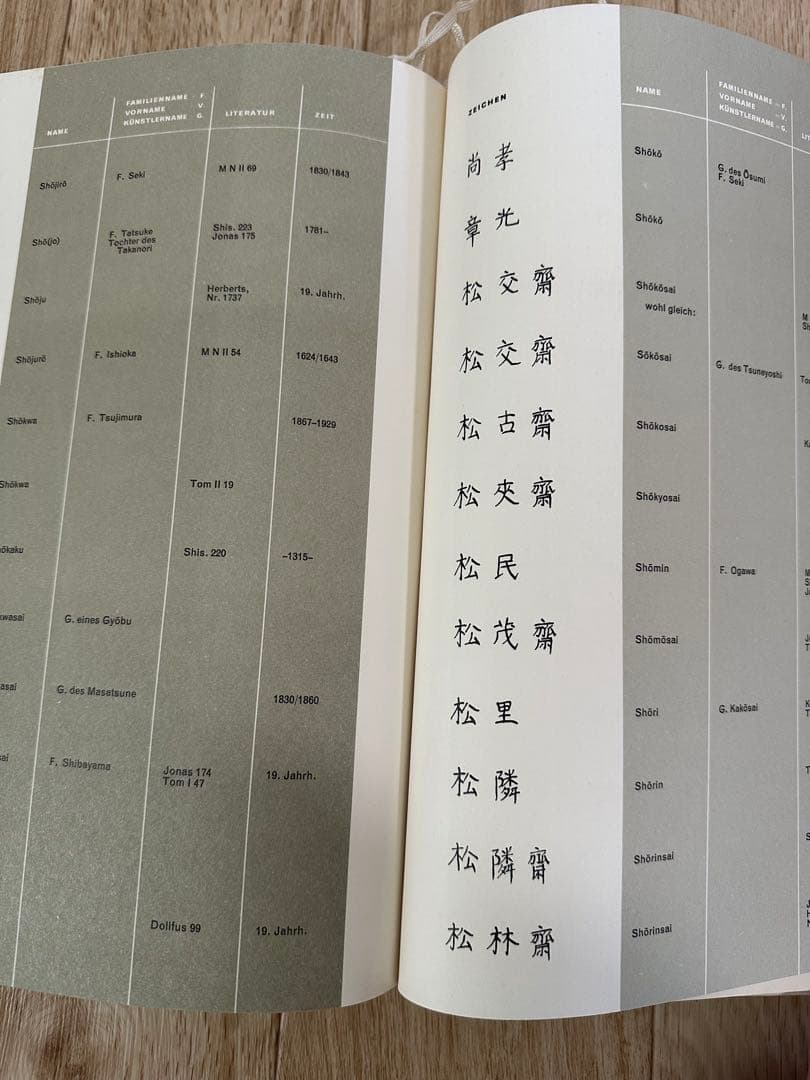 NAME FAMILIENNAME – F. LITERATUR ZEIT
VORNAME V.
KÜNSTLERNAME G.
Shōjirō F. Seki M N II 69 1830/1843
Shō(jo) F. Tatsuke Shis. 223 1781–
Tochter des Jonas 175
Takanori
Shōju Herberts, 19. Jahrh.
Nr. 1737
Shōjurō F. Ishioka M N II 54 1624/1643
Shōkwa F. Tsujimura 1867–1929
Shōkwa Tom II 19
Shis. 220 –1315–
G. eines Gyōbu
G. des Masatsune 1830/1860
F. Shibayama Jonas 174 19. Jahrh.
Tom I 47
Dollfus 99 19. Jahrh.
ZEICHEN NAME FAMILIENNAME – F.
VORNAME – V.
KÜNSTLERNAME – G.
尚孝 Shōkō G. des Ōsumi
F. Seki
章光 Shōkō
松交齋 Shōkōsai
wohl gleich:
松交齋 Sōkōsai G. des Tsuneyoshi
松古齋 Shōkosai
松夾齋 Shōkyosai
松民 Shōmin F. Ogawa
松茂齋 Shōmōsai
松里 Shōri G. Kakōsai
松隣 Shōrin
松隣齋 Shōrinsai
松林齋 Shōrinsai